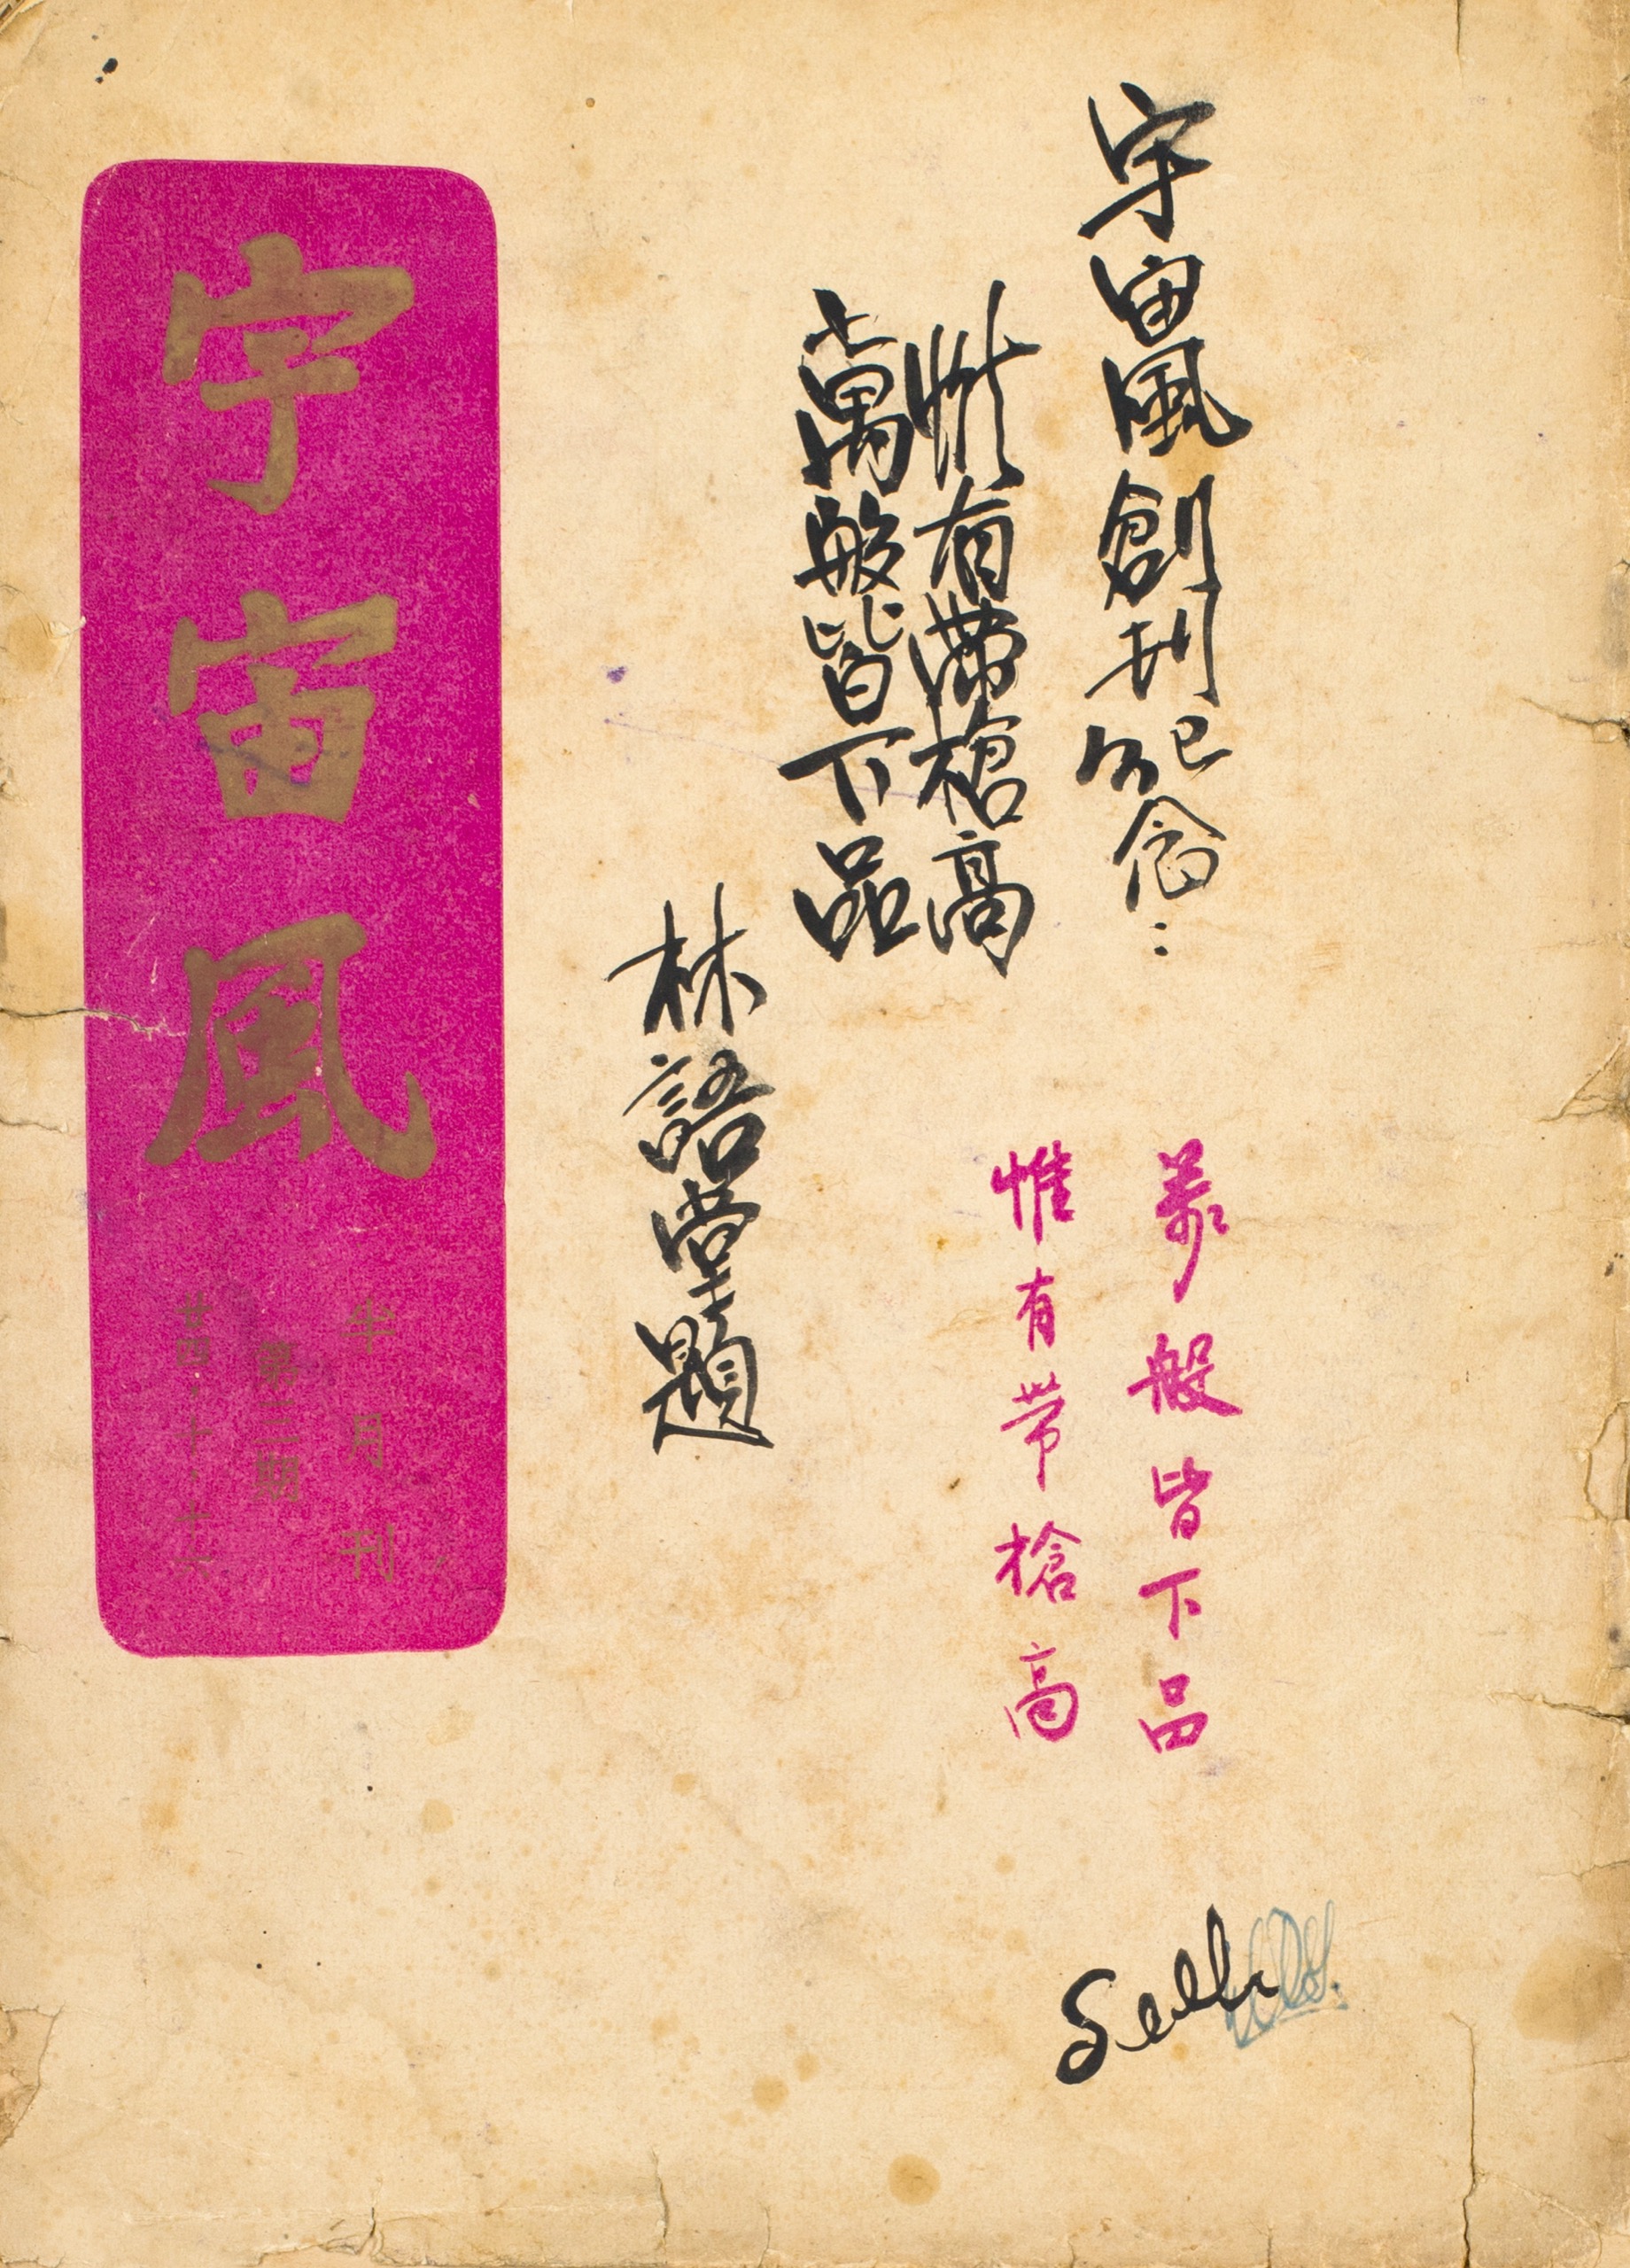 宇宙風創刊紀念：
惟有帶槍高
萬般皆下品
林語堂題
萬般皆下品
惟有帶槍高
宇宙風
半月刊
第三期
廿四·十·十六